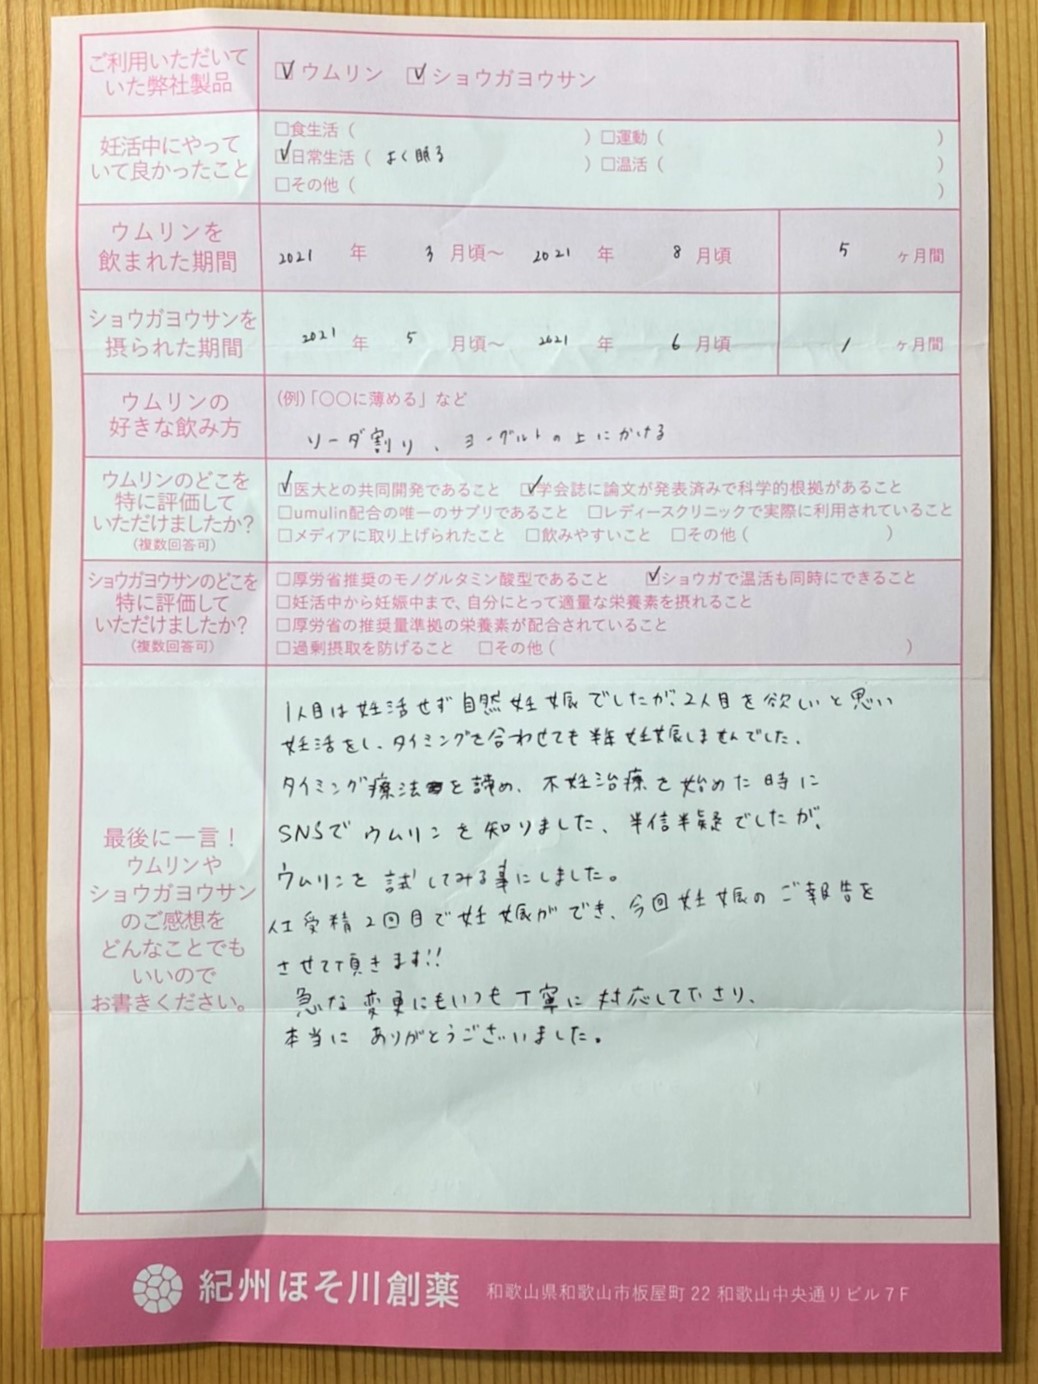 ご利用いただいて
いた弊社製品
☑ウムリン ☑ショウガヨウサン
妊活中にやって
いて良かったこと
□食生活（ ）□運動（ ）
☑日常生活（ よく眠る ）□温活（ ）
□その他（ ）
ウムリンを
飲まれた期間
2021 年 3 月頃～ 2021 年 8 月頃 5 ヶ月間
ショウガヨウサンを
摂られた期間
2021 年 5 月頃～ 2021 年 6 月頃 1 ヶ月間
ウムリンの
好きな飲み方
(例)「○○に薄める」など
ソーダ割り、ヨーグルトの上にかける
ウムリンのどこを
特に評価して
いただけましたか？
(複数回答可)
☑医大との共同開発であること ☑学会誌に論文が発表済みで科学的根拠があること
□umulin配合の唯一のサプリであること □レディースクリニックで実際に利用されていること
□メディアに取り上げられたこと □飲みやすいこと □その他（ ）
ショウガヨウサンのどこを
特に評価して
いただけましたか？
(複数回答可)
□厚労省推奨のモノグルタミン酸型であること ☑ショウガで温活も同時にできること
□妊活中から妊娠中まで、自分にとって適量な栄養素を摂れること
□厚労省の推奨量準拠の栄養素が配合されていること
□過剰摂取を防げること □その他（ ）
最後に一言！
ウムリンや
ショウガヨウサン
のご感想を
どんなことでも
いいので
お書きください。
1人目は妊活せず自然妊娠でしたが、2人目を欲しいと思い
妊活をし、タイミングを合わせても半年妊娠しませんでした。
タイミング療法を諦め、不妊治療を始めた時に
SNSでウムリンを知りました、半信半疑でしたが、
ウムリンを試してみる事にしました。
人工受精2回目で妊娠ができ、今回妊娠のご報告を
させて頂きます!!
急な変更にもいつも丁寧に対応して下さり、
本当にありがとうございました。
紀州ほそ川創薬 和歌山県和歌山市板屋町 22 和歌山中央通りビル 7 F